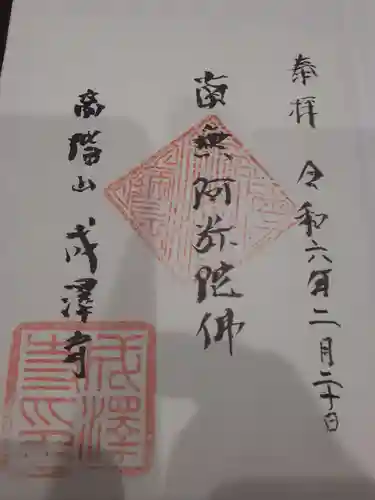 奉拝 令和六年二月二十日
南無阿弥陀佛
高階山 成澤寺